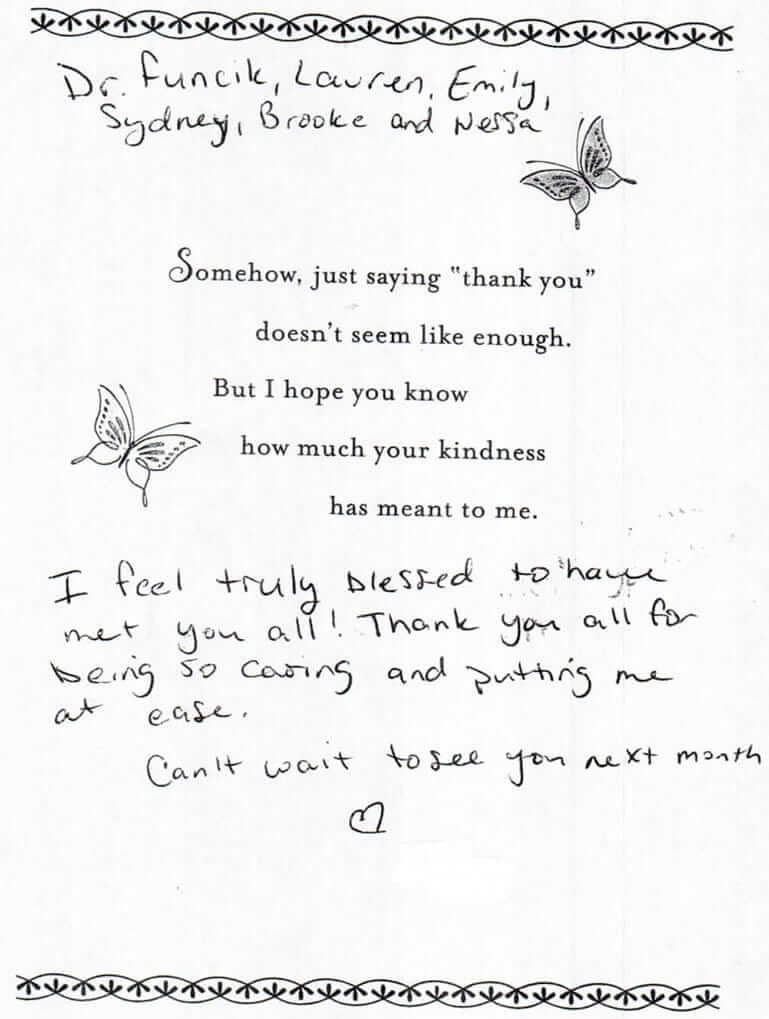 Dr. Funcik, Lauren, Emily,
Sydney, Brooke and Nessa
Somehow, just saying "thank you"
doesn't seem like enough.
But I hope you know
how much your kindness
has meant to me.
I feel truly blessed to have
met you all! Thank you all for
being so caring and putting me
at ease.
Can't wait to see you next month
♡